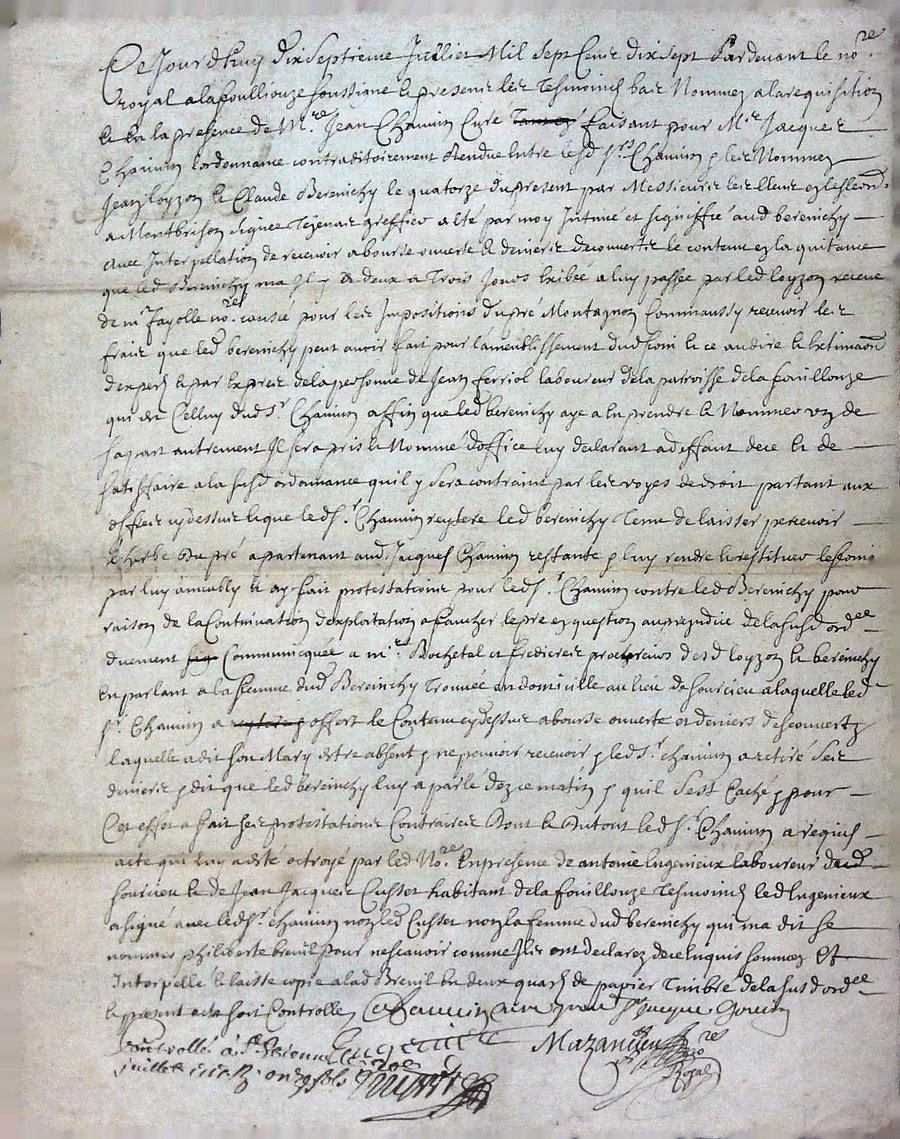 Ce Jourdhuy dix septieme Juilliet Mil Sept Cent dix sept Pardevant le no.re
royal a la foullouze soussigné et presents les Tesmoins bas Nommez a la requisition
et En la presence de M.re Jean Chauvin Curé faisant pour M.re Jacques
Chauvin l'ordonnance contraditoirement Rendue Entre led s.r Chauvin les Nommez
Jean loyzon et Claude Berenichy le quatorze du present par Messieurs les Esleus en l'eslection
a Montbrison signée greffier a été par moy Intimé et signiffié aud berenichy
avec Interpellation de recevoir a bourse ouverte et deniers decouverts le contenu en la quitance
que led Berenichy m'a Il y a deux a Trois Jours a luy passée par led loyzon
de m.r fayolle no.re causée pour les Impositions du pré Montagnon Comm'aussy recevoir les
frais que led berenichy peut avoir fait pour l'ameublissement dud foin et ce au dire et Estimaon
d'expers et par Exprez de la personne de Jean ferriol laboureur de la parroisse de la fouillouze
qui est Celluy dud s.r Chauvin affin que led berenichy aye a en prendre et Nommer un de
sa part autrement Il sera pris et Nommé d'office luy declarant a deffaut de ce et de
satisffaire a la susd ordonnance qu'il y sera contraint par les voyes de droit partant aux
offres cy dessus et que led s.r Chauvin reytere led berenichy Tenu de laisser percevoir
l'herbe du pré apartenant aud. Jacques Chauvin restante luy rendre et restituer les foins
par luy ameubly et ay fait protestations pour led s.r Chauvin contre led Berenichy pour
raison de la Continuation d'exploitation a faucher le pré en question au prejudice de la susd ord.ce
duement Communiquée a m.rs Rochetal et procureurs desd loyzon et berenichy
En parlant a la femme dud Berenichy Trouvée au domicille au lieu de sourcieu a laquelle led
s.r Chauvin a offert le Contenu cy dessus a bourse ouverte et deniers descouvertz
laquelle a dit son Mary estre absent ne pouvoir recevoir led s.r chauvin a retiré ses
deniers dit que led berenichy luy a parlé de ce matin qu'il s'est Caché pour
Cet effet a fait ses protestations Contraires Dont et Du tout led s.r Chauvin a requis
acte qui luy a esté octroyé par led No.re En presence de antoine Ingenieux laboureur dud
sourcieu et de Jean Jacques Cusset habitant de la fouillouze Tesmoins led Ingenieux
a signé avec led s.r chauvin non led Cusset non la femme dud berenichy qui m'a dit se
nommer philiberte breuil Pour ne scavoir comme Ils ont declarez de ce Enquis sommez Et
Interpellé et laissé copie a lad Breuil En deux quars de papier Timbré de la susd ord.ce
le present acte soit Controllé Chauvin curé
Controllé a St Estienne Ingenieux Mazandieu no.re
juillet onze sols Royal